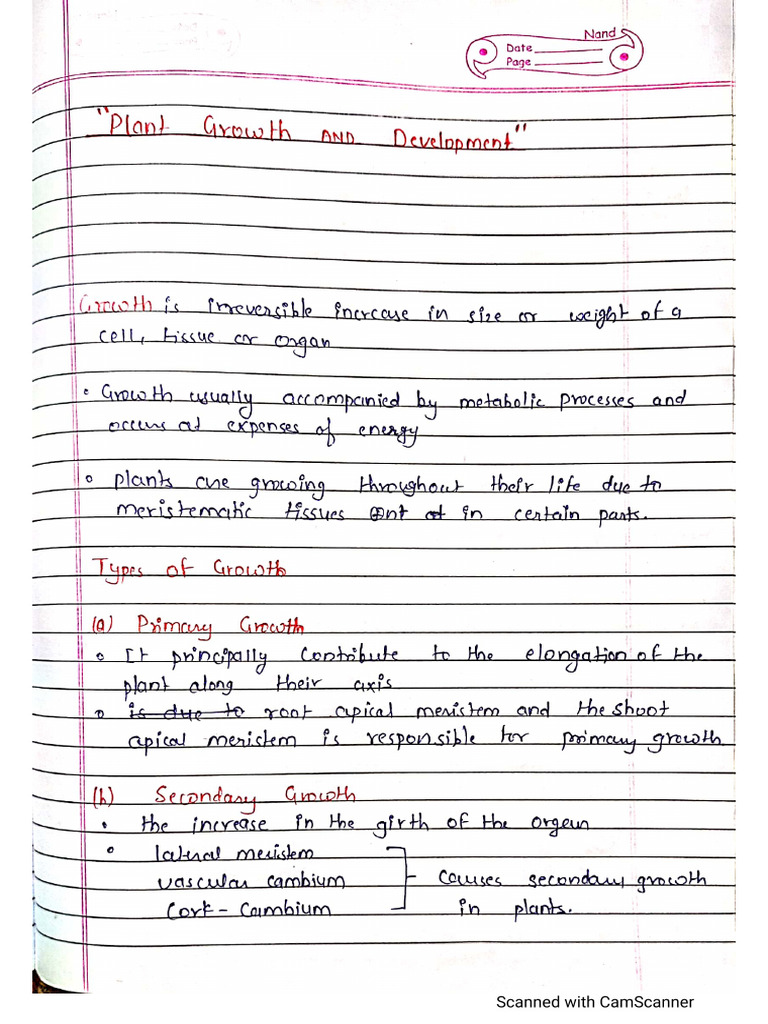 Nand
Date
Page
"Plant Growth AND Development"
Growth is irreversible increase in size or weight of a
cell, tissue or organ
• Growth usually accompanied by metabolic processes and
occurs at expenses of energy
• plants are growing throughout their life due to
meristematic tissues in certain parts.
Types of Growth
(a) Primary Growth
• It principally contribute to the elongation of the
plant along their axis
• is due to root apical meristem and the shoot
apical meristem is responsible for primary growth
(b) Secondary Growth
• the increase in the girth of the organ
• lateral meristem
vascular cambium
Cork-Cambium
Causes secondary growth
in plants.
Scanned with CamScanner